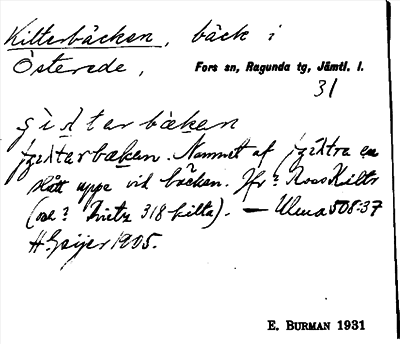 Kilterbäcken, bäck i
Österede, Fors sn, Ragunda tg, Jämtl. l.
31
jᶎiltarbäken. Namnet af jᶎiltra en
slått uppe vid bäcken. Jfr? Ross Kiltr
(ose? Fritz 318 kilta). — Ulma 508:37
H. Geijer 1905.
E. BURMAN 1931